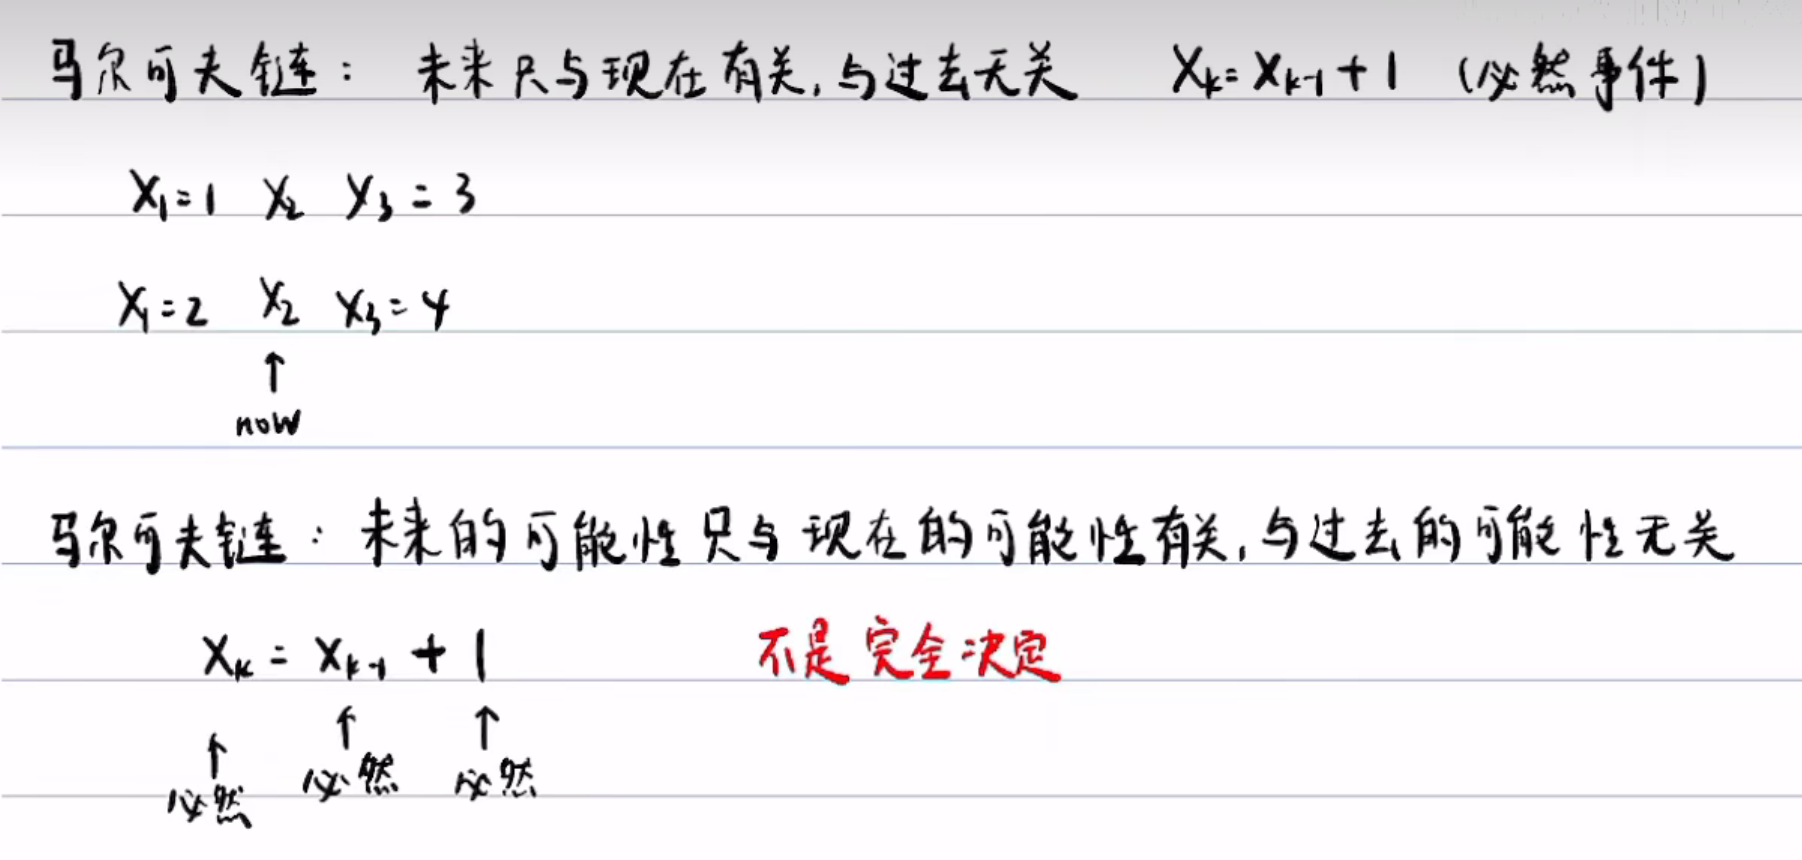 马尔可夫链： 未来只与现在有关，与过去无关 Xk=Xk-1+1 （必然事件）
X1=1 X2 X3=3
X1=2 X2 X3=4
↑
now
马尔可夫链：未来的可能性只与现在的可能性有关，与过去的可能性无关
Xk=Xk-1+1 不是完全决定
↑ ↑ ↑
必然 必然 必然